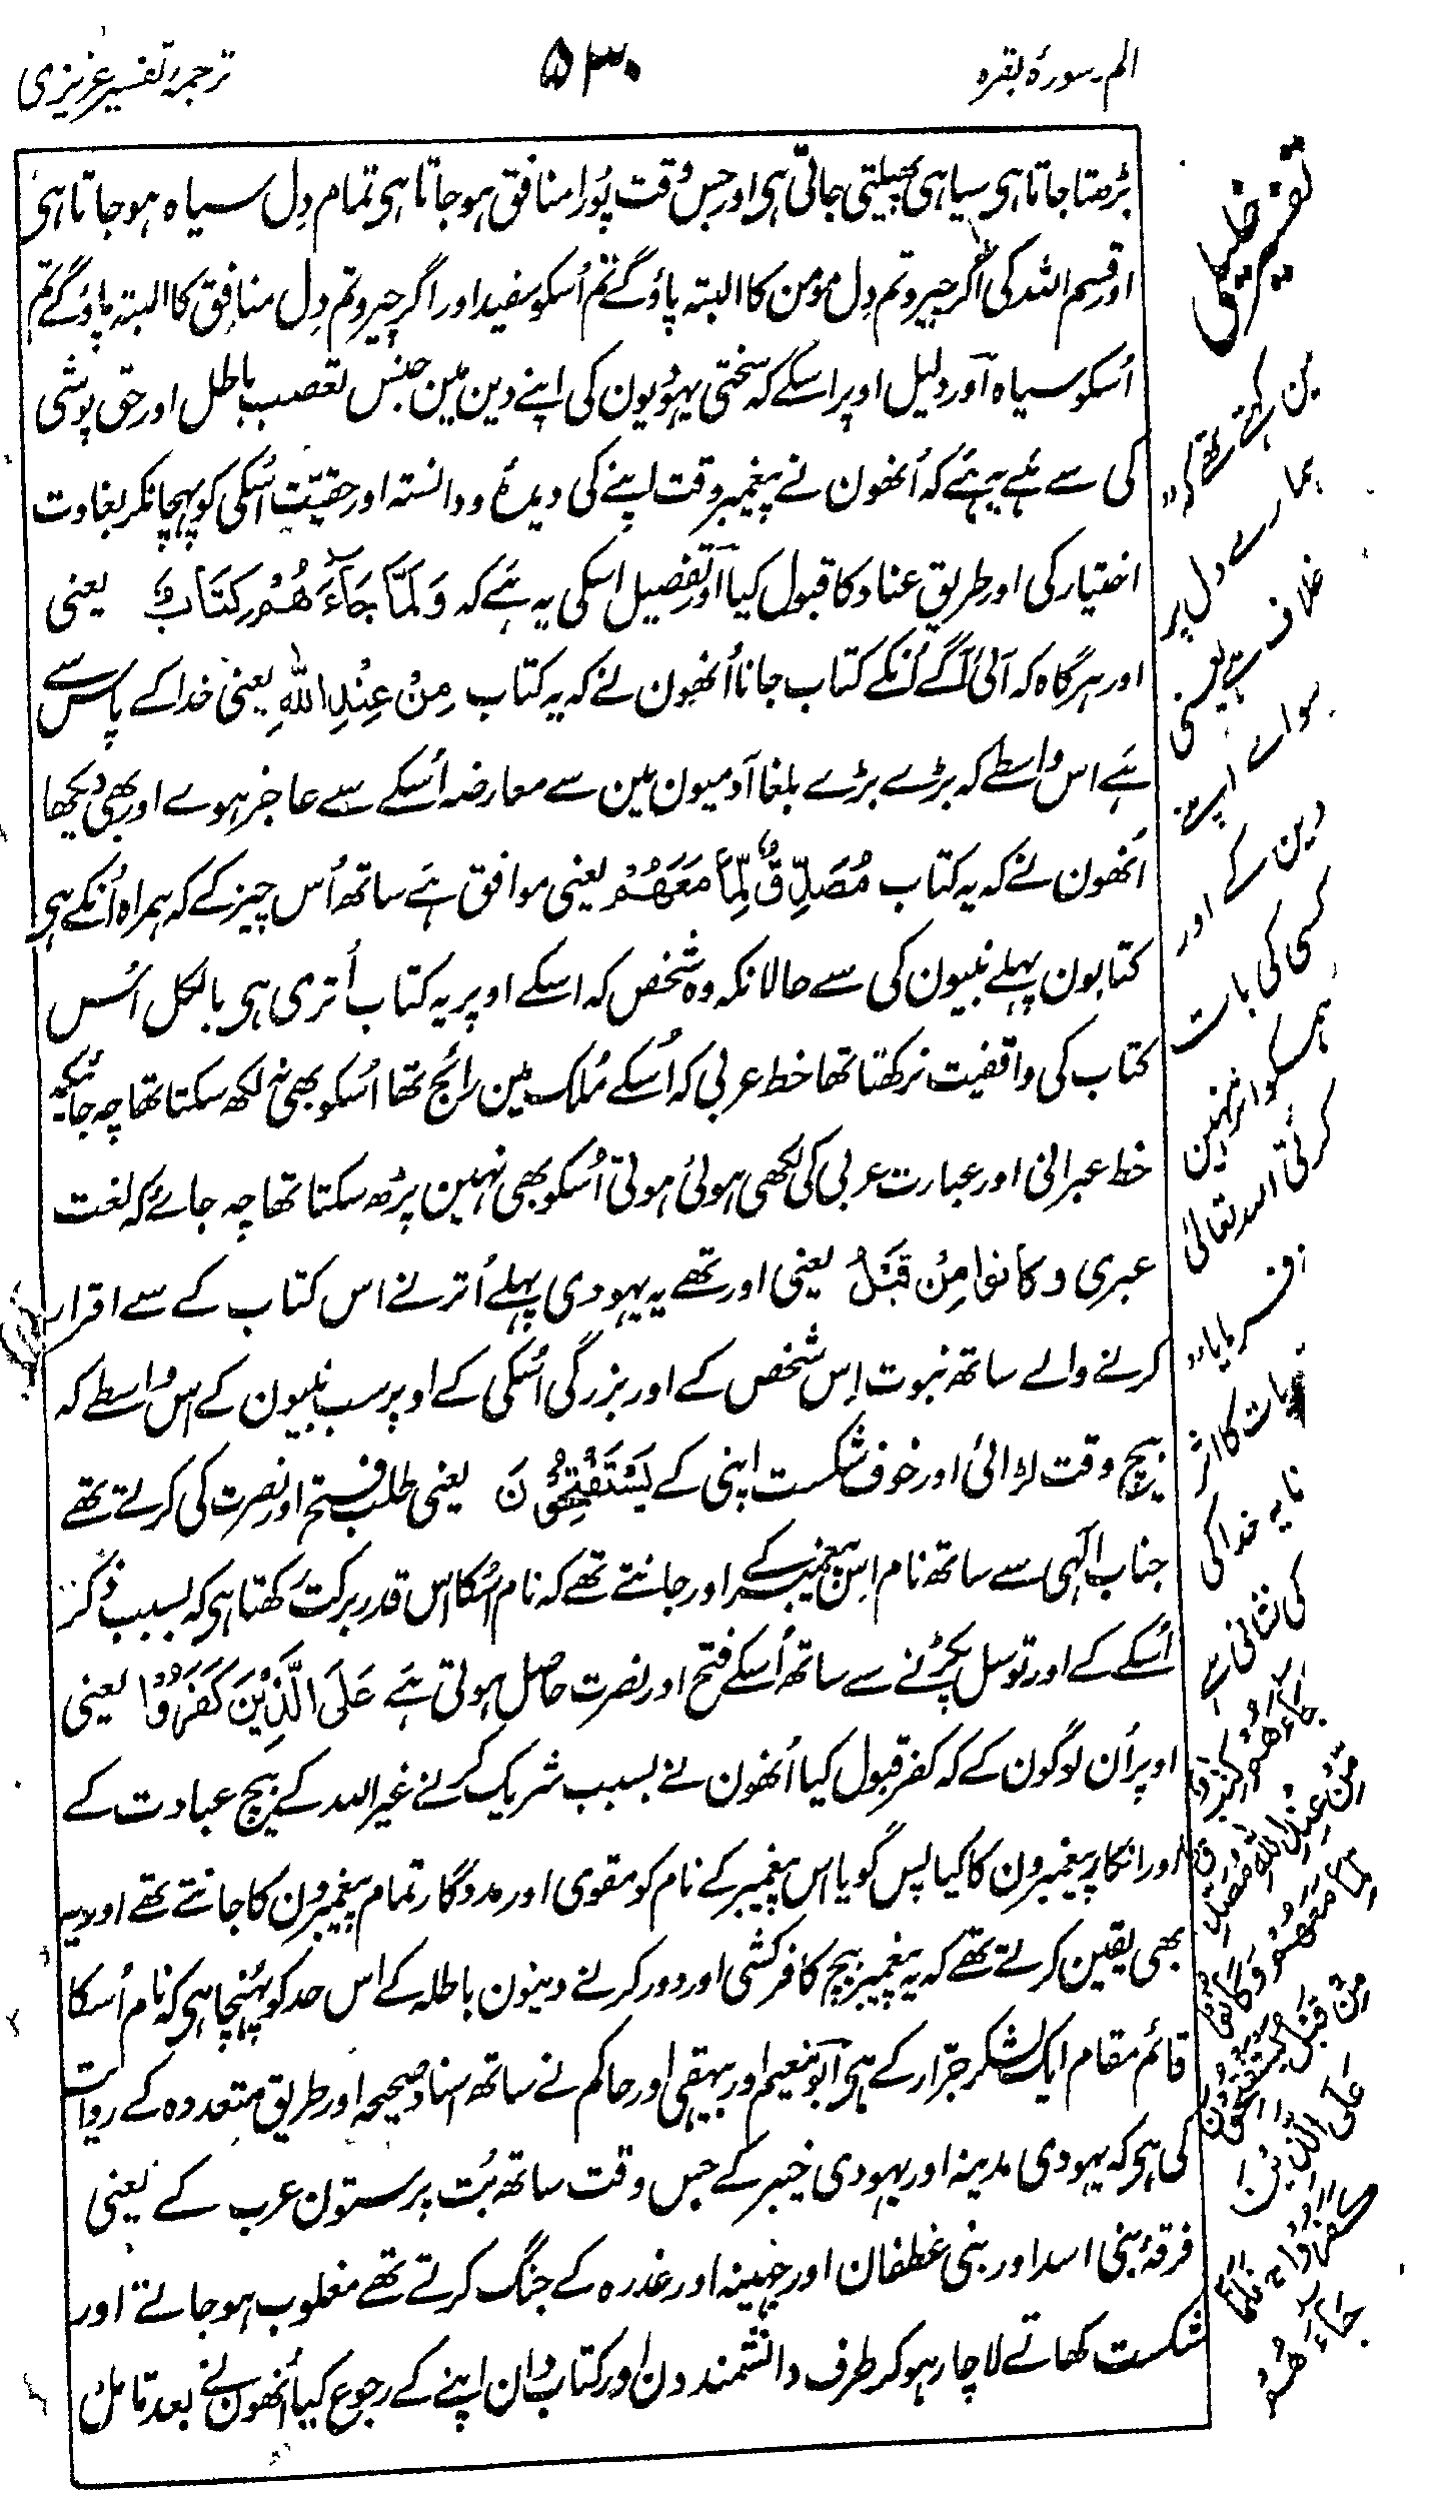 الم۔سورۂ بقرہ
۵۳۰
ترجمہ تفسیر عزیزی
بڑھتا جاتا ہی سیاہی پھیلتی جاتی ہی اور جس وقت پورا منافق ہو جاتا ہی تمام دِل سیاہ ہو جاتا ہی
اور قسم اللہ کی اگر چیرو تم دِل مومن کا البتہ پاؤگے تم اُسکو سفید اور اگر چیرو تم دِل منافِق کا البتہ پاؤگے تم
اُسکو سیاہ اور دلیل اوپر اسکے کہ سختی یہودیون کی اپنے دین مین جنس تعصب باطل اور حق پوشی
کی سے ہے یہ ہے کہ اُنھون نے پیغمبر وقت اپنے کی دیدۂ و دانستہ اور حقیّت اُسکی کو پہچانکر بغاوت
اختیار کی اور طریق عناد کا قبول کیا اور تفصیل اسکی یہ ہے کہ وَلَمَّا جَآءَهُمْ كِتَابٌ یعنی
اور ہرگاہ کہ آئی آگے اُنکے کتاب جانا اُنھون نے کہ یہ کتاب مِنْ عِنْدِ اللهِ یعنی خدا کے پاس سے
ہے اس واسطے کہ بڑے بڑے بلغا آدمیون مین سے معارضہ اُسکے سے عاجز ہوے اور بھی دیکھا
اُنھون نے کہ یہ کتاب مُصَدِّقٌ لِّمَا مَعَهُمْ یعنی موافق ہے ساتھ اُس چیز کے کہ ہمراہ اُنکے ہی
کتابون پہلے نبیون کی سے حالانکہ وہ شخص کہ اسکے اوپر یہ کتاب اُتری ہی بالکل اُس
کتاب کی واقفیت نرکھتا تھا خط عربی کہ اُسکے مُلک مین رائج تھا اُسکو بھی نہ لکھ سکتا تھا چہ جائیکہ
خط عبرانی اور عبارت عربی کی لکھی ہوئی ہوتی اُسکو بھی نہین پڑھ سکتا تھا چہ جاے کہ لغت
عبری وَكَانُوا مِنْ قَبْلُ یعنی اور تھے یہ یہودی پہلے اُترنے اس کتاب کے سے اقرار
کرنے والے ساتھ نبوت اِس شخص کے اور بزرگی اُسکی کے اوپر سب نبیون کے اس واسطے کہ
بیچ وقت لڑائی اور خوف شکست اپنی کے يَسْتَفْتِحُوْنَ یعنی طلب فتح اور نصرت کی کرتے تھے
جناب الٰہی سے ساتھ نام اِس پیغمبر کے اور جانتے تھے کہ نام اُسکا اس قدر برکت رکھتا ہی کہ بسبب ذکر
اُسکے کے اور توسل پکڑنے سے ساتھ اُسکے فتح اور نصرت حاصل ہوتی ہے عَلَى الَّذِيْنَ كَفَرُوْا یعنی
اوپر اُن لوگون کے کہ کفر قبول کیا اُنھون نے بسبب شریک کرنے غیر اللہ کے بیچ عبادت کے
اور انکار پیغمبرون کا کیا پس گویا اس پیغمبر کے نام کو مقوی اور مددگار تمام پیغمبرون کا جانتے تھے اور یہ
بھی یقین کرتے تھے کہ یہ پیغمبر بیچ کافر کشی اور دور کرنے دینون باطلہ کے اس حد کو پہنچا ہی کہ نام اُسکا
قائم مقام ایک لشکر جرّار کے ہی ابو نعیم اور بیہقی اور حاکم نے ساتھ اسناد صحیحہ اور طریق متعددہ کے روایت
کی ہی کہ یہودی مدینہ اور یہودی خیبر کے جس وقت ساتھ بُت پرستون عرب کے یعنی
فرقۂ بنی اسد اور بنی غطفان اور جہینہ اور عذرہ کے جنگ کرتے تھے مغلوب ہو جاتے اور
شکست کھاتے لاچار ہو کر طرف دانشمندون اور کتاب دان اپنے کے رجوع کیا اُنھون نے بعد تامل
تفسیر خلیلی
ین کہتے تھے کہ
ہمارے دل پر
غلاف ہے یعنی
سواے اپنے
دین کے اور
کسی کی بات
ہمکو اثر نہین
کرتی اللہ تعالیٰ
فرمایا
بات کا اثر
نایہ خدا کی
کی نشانی ہے
جَاءَهُمْ كِتٰبٌ
مِّنْ عِنْدِ اللهِ مُصَدِّقٌ
لِّمَا مَعَهُمْ وَكَانُوْا
مِنْ قَبْلُ يَسْتَفْتِحُوْنَ
عَلَى الَّذِيْنَ
كَفَرُوْا فَلَمَّا
جَاءَهُمْ